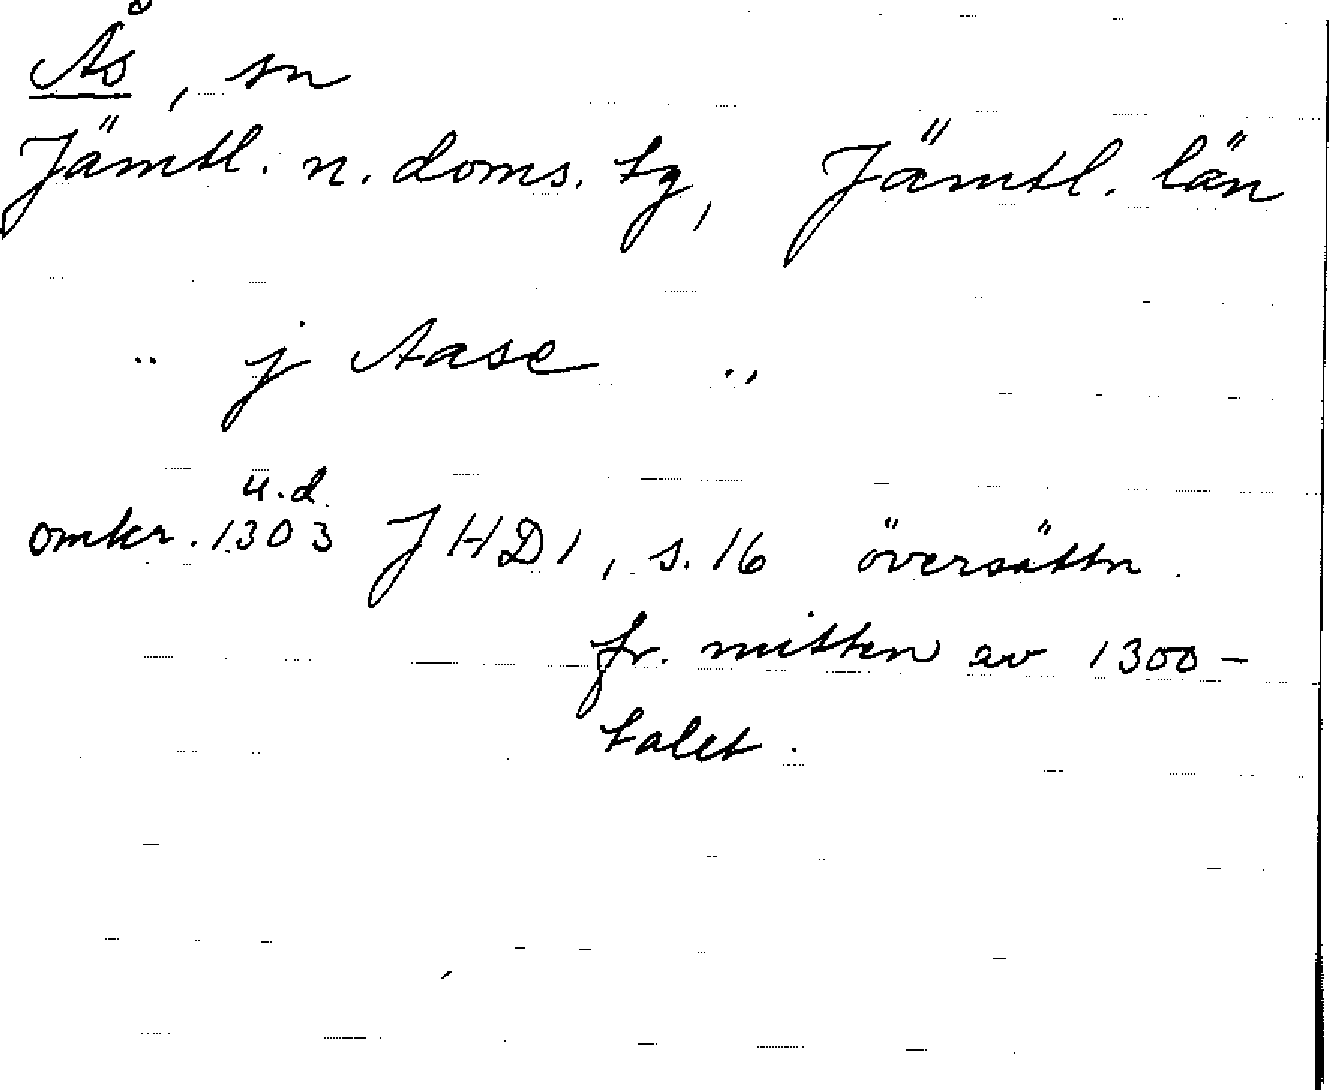 Ås, sn
Jämtl. n. doms. tg, Jämtl. län
.. j Aase ..
u.d.
omkr. 1303 JHD 1, s. 16 översättn.
fr. mitten av 1300-
talet.